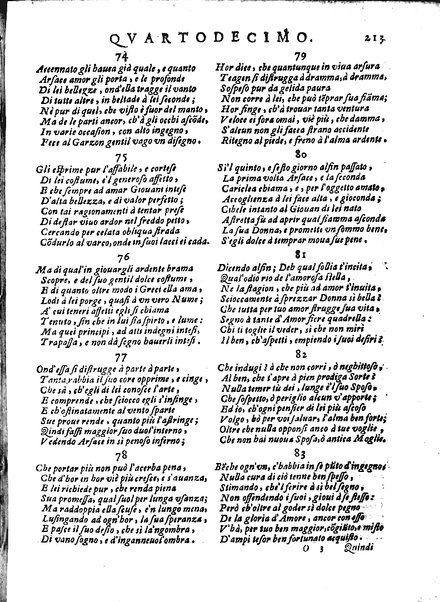 QVARTODECIMO. 213
74
Accennato gli hauea già quale, e quanto
Arsace amor gli porta, e le profonde
Di lei bellezze, ond'ella tragge il vanto
Di tutte altre, in beltade à lei seconde;
Nè pur di quel, che visto è fuor del manto,
Ma de le parti ancor, ch'à gli occhi ascõde,
In varie occasion, con alto ingegno,
Fece al Garzon gentil vago vn disegno.
75
Gli esprime pur l'affabile, e cortese
Di lei costume, e'l generoso affetto,
E che sempre ad amar Giouani intese
D'alta bellezza, e di valor perfetto;
Con tai ragionamenti à tentar prese
Di destar viuo ardor nel freddo petto,
Cercando per celata obliqua strada
Cõdurlo al varco, onde in suoi lacci ei cada.
76
Ma di qual'in giouar gli ardente brama
Scopre, e del suo gentil dolce costume,
E di quanto oltre modo i Greci ella ama,
Lodi à lei porge, quasi à vn vero Nume;
A' cui teneri affetti egli si chiama
Tenuto, fin che in lui sia spirto, e lume:
Ma quei principi, ad atti indegni intesi,
Trapassa, e non dà segno hauerli intesi.
77
Ond'essa si distrugge à parte à parte,
Tanta rabbia il suo core opprime, e cinge,
Che sà, ch'egli di lei conosce l'arte,
E comprende, che sciocco egli s'infinge,
E ch'ostinatamente al vento sparte
Sue proue rende, quanto più l'astringe;
Quindi fassi maggior suo duol'interno,
Vedendo Arsace in sì penoso inferno;
78
Che portar più non può l'acerba pena,
Che d'hor in hor viè più cresce, e s'auanza,
E lei richiede pur, che renda piena
Sua promessa, qual suol per lunga vsanza;
Ma raddoppia ella scuse, e'n lungo mena,
Lusingando ad ogn'hor, la sua speranza,
E pasce il suo desio, che sà l'angombra,
Di vano sogno, e d'ingannatric'ombra.
79
Hor dice, che quantunque in viua arsura
Teagen si distrugga à dramma, à dramma,
Sospeso pur da gelida paura
Non corre à lei, che può tẽprar sua fiãma;
Hor finge, ch'à trouar tanta ventura
Veloce ei fora omai, viè più, che damma,
S'alcun non gli facea strano accidente
Ritegno al piede, e freno à l'alma ardente.
80
Sì'l quinto, e sesto giorno alfin passato,
La prima volta Arsace, e la seconda
Cariclea chiama, e, per l'oggetto amato,
Accoglienza à lei face alta, e gioconda;
Cibele intanto al Giouan di lei nato
Astretta fù ad aprir qual fiamma asconda
La sua Donna, e promette vn sommo bene,
S'egli dolce à temprar moua sue pene.
81
Dicendo alfin; Deh qual follia t'incita,
Qual'odio rio de l'amorosa stella,
Ne la stagion, che più ad amar t'inuita,
Scioccamente à sprezzar Donna sì bella?
Che tutta per tuo amar strugge sua vita,
Segno à tante d'Amor fiere quadrella:
Chi ti toglie il veder, sì che non miri
Il ben, ch'aspetti, empiendo i suoi desiri?
82
Che indugi? à che non corri, ò neghittoso,
Al ben, che s'apre à pien prodiga Sorte?
Nulla temer tù dei, lunge è'l suo Sposo,
Che sospetto, ò periglio alcun v'apporte;
Ed io, ch'ogni pensier di lei più ascoso
Volgo, bò per voi salaur, l'alma ben forte;
Oltre che nulla opponsi anco à tue voglie,
Che non hai nuoua Sposa, ò antica Moglie.
83
Bẽche ogn'vn, c'habbia in se pũto d'ingegno,
Nulla cura di ciò tenne ben spesso,
Stimando, che'l serire à sì bel segno,
Non offendendo i suoi, gioui à se stesso:
Però ch'oltre al goder sì dolce pegno
De la gloria d'Amore, ancor con esso
V'hà, per tuo ben maggior, cõgiũto, e misto
D'ampi tesor ben fortunato acquisto.
O 3 Quindi